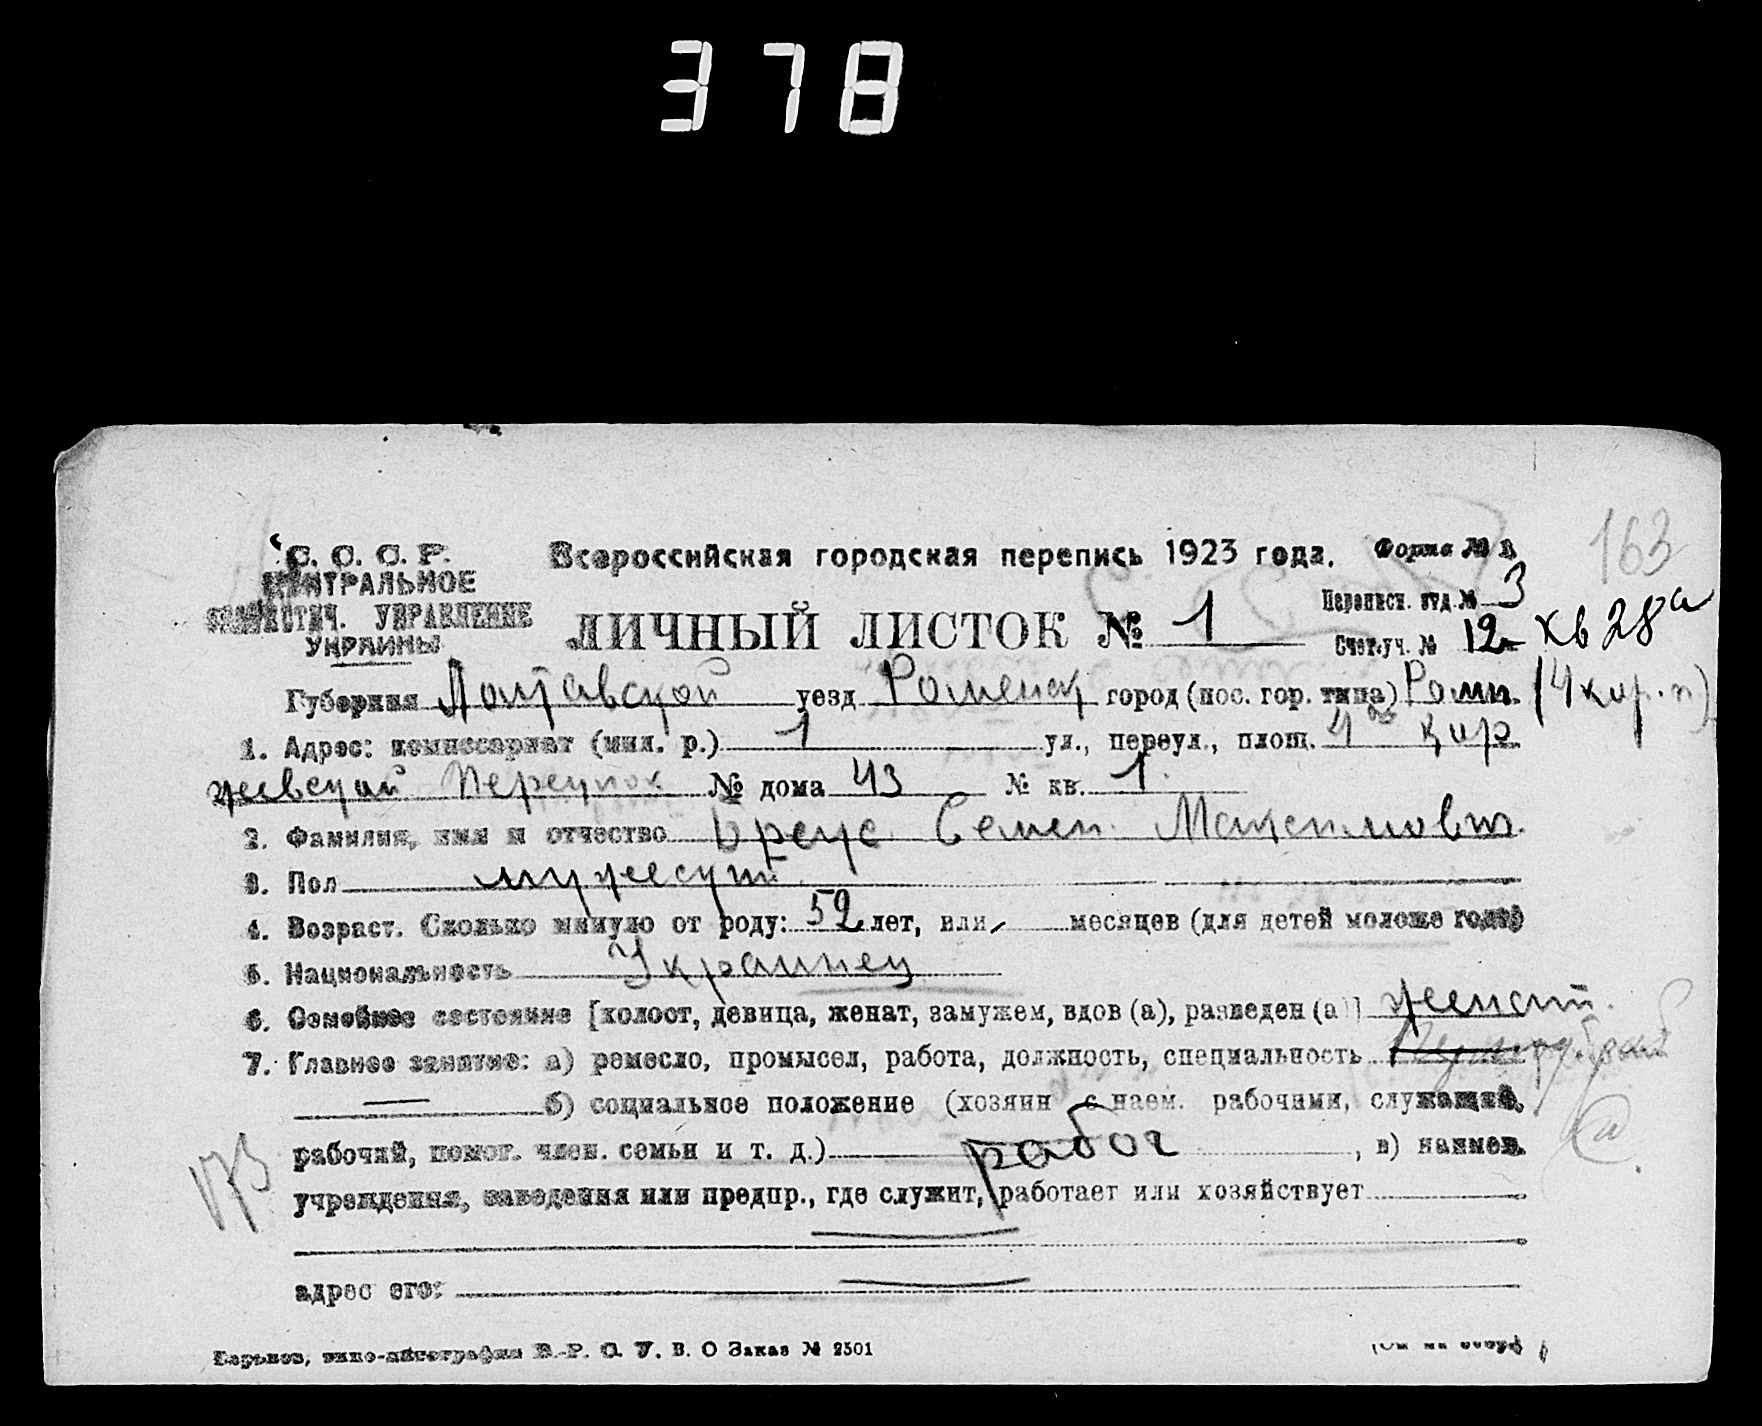 378
163
С. С. С. Р.
ЦЕНТРАЛЬНОЕ
СТАТИСТИЧ. УПРАВЛЕНИЕ
УКРАИНЫ
Всероссийская городская перепись 1923 года.
Форма № 1
ЛИЧНЫЙ ЛИСТОК № 1
Переписн. отд. № 3
Счет.уч. № 12 кв 28а
Губерния Полтавской уезд Роменск город (пос. гор. типа) Ромн. (4 кир. п)
1. Адрес: комиссариат (мил. р.) 1 ул., переул., площ. 4 кир
чевский Переулок № дома 43 № кв. 1.
2. Фамилия, имя и отчество Семен
3. Пол мужеск
4. Возраст. Сколько минуло от роду: 52 лет, или месяцев (для детей моложе года)
5. Национальность Украинец
6. Семейное состояние [холост, девица, женат, замужем, вдов (а), разведен (а)] женат.
7. Главное занятие: а) ремесло, промысел, работа, должность, специальность
б) социальное положение (хозяин с наем. рабочими, служащий,
рабочий, помог. член. семьи и т. д.) рабоч , в) наимен.
173
учреждения, заведения или предпр., где служит, работает или хозяйствует
адрес его:
Харьков, типо-литография В. Р. С. У. В. О Заказ № 2501